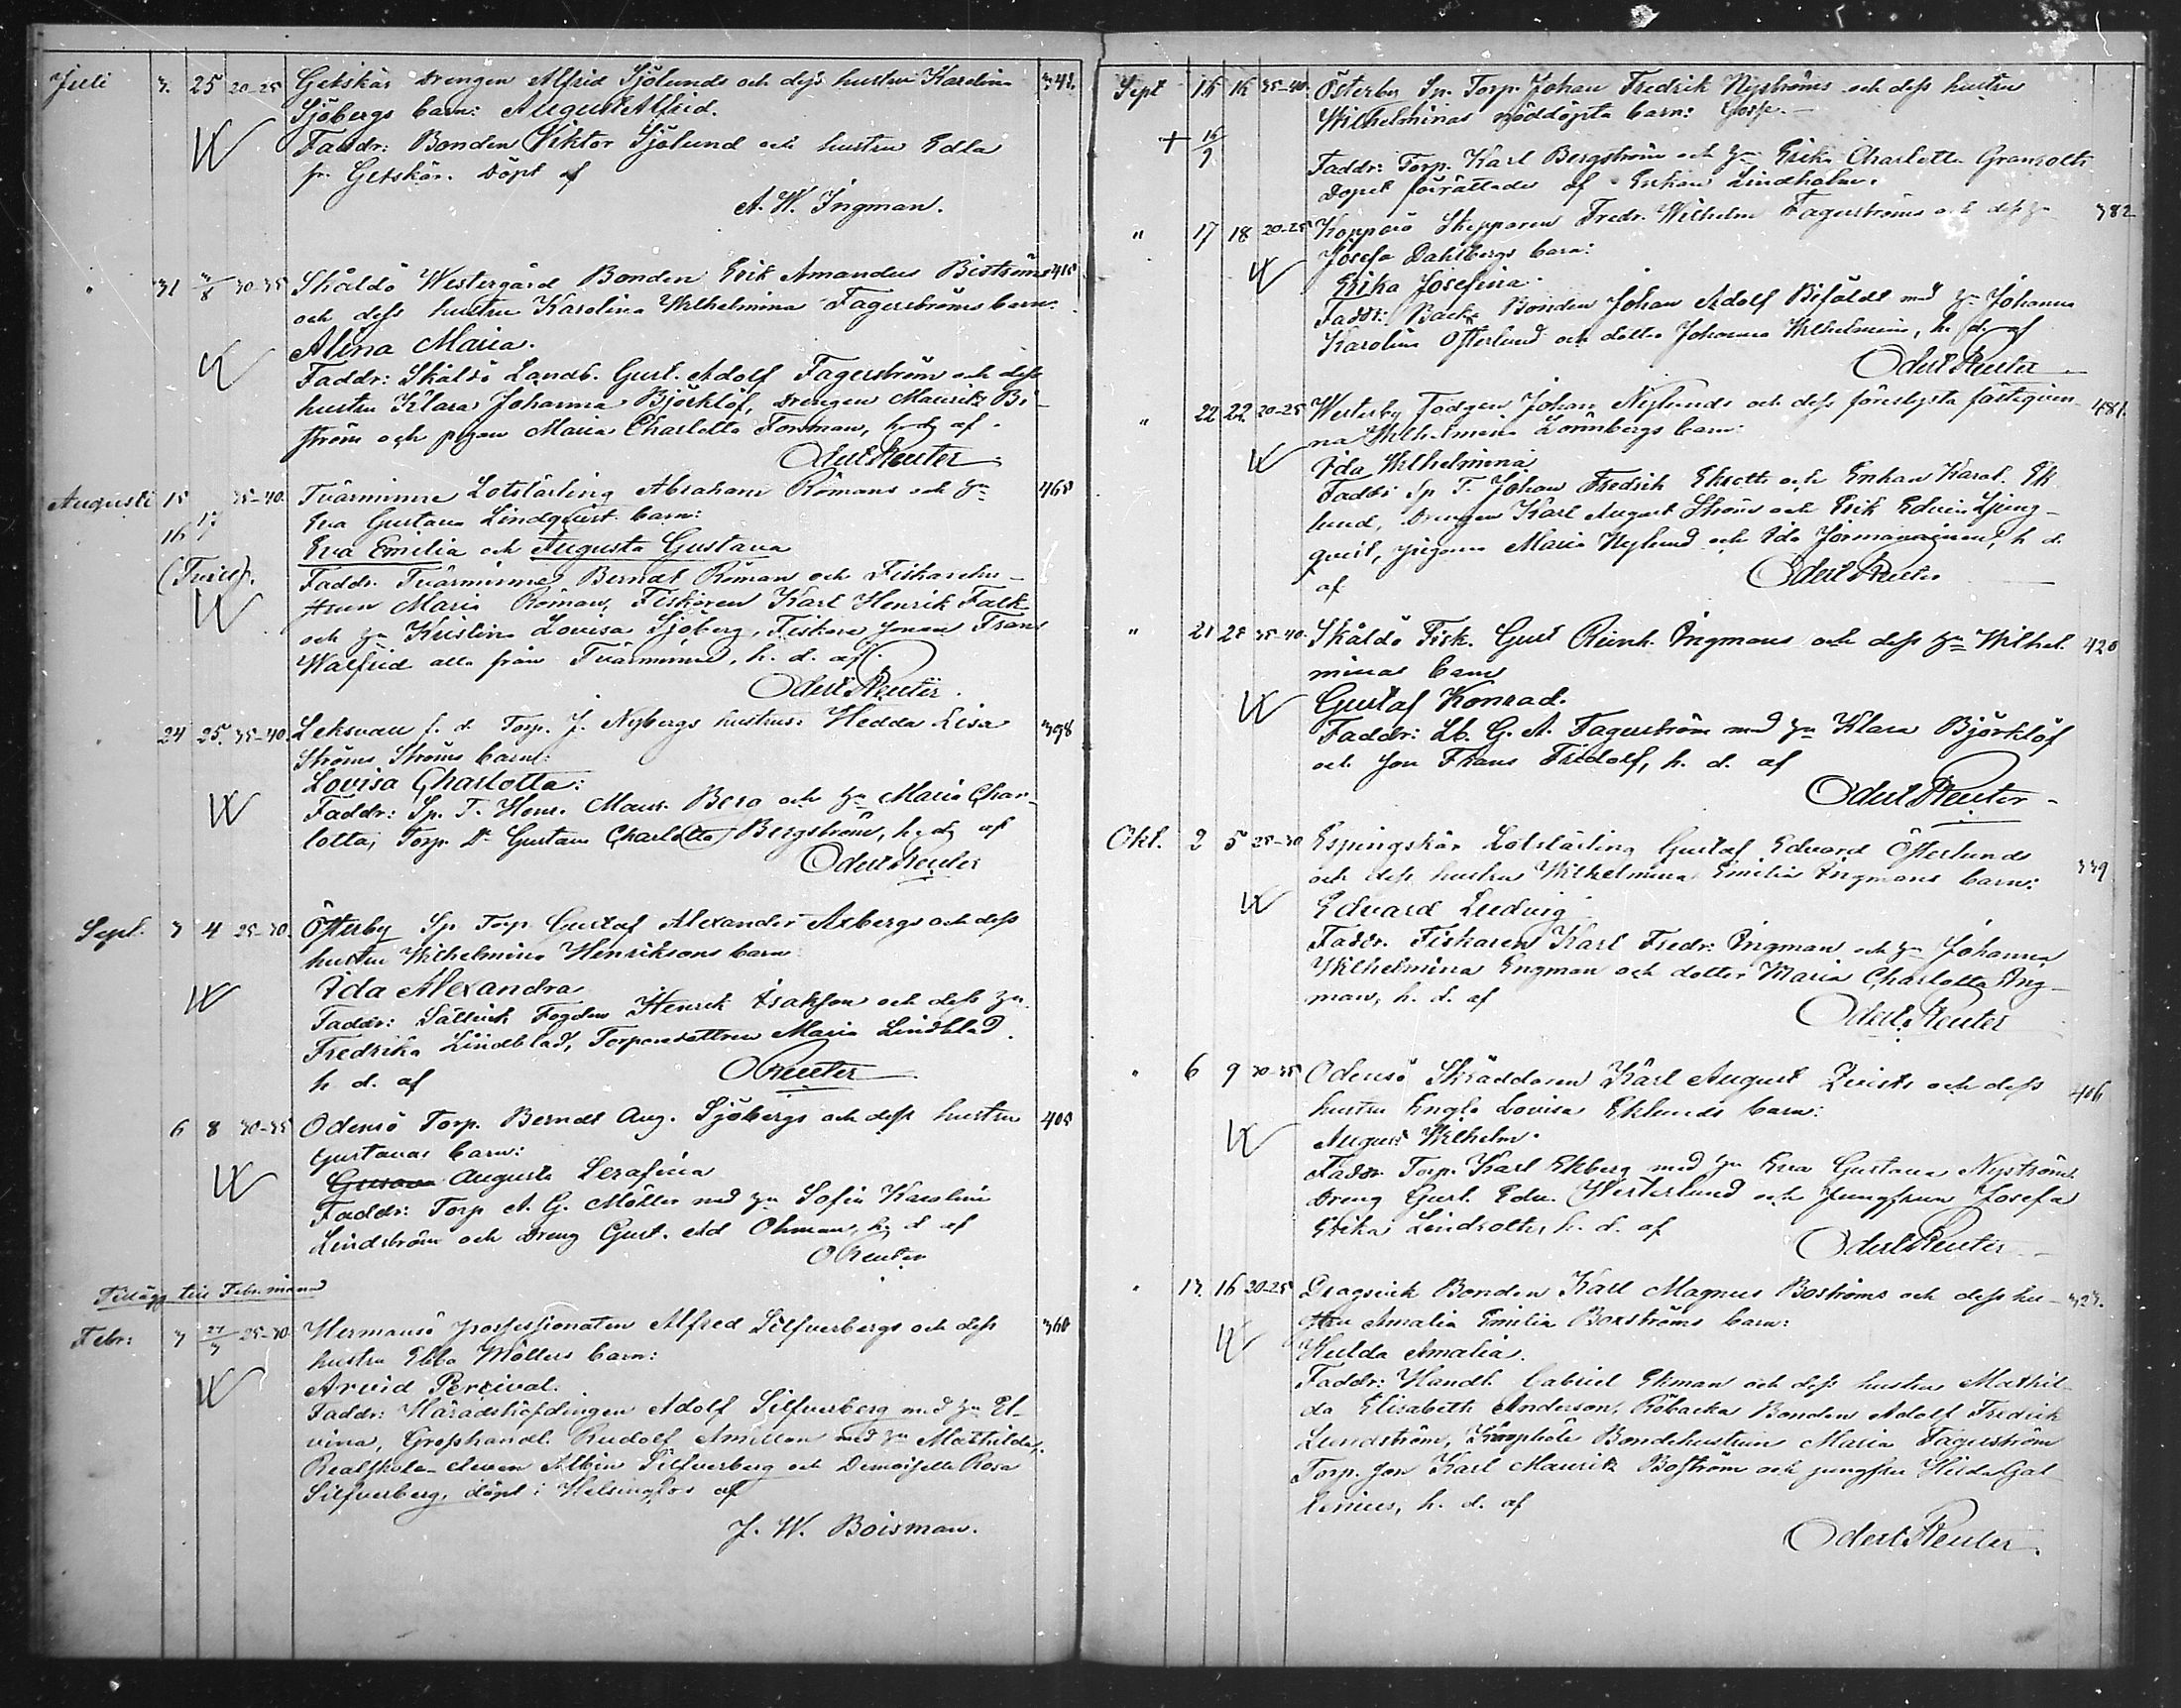 Juli 3. 25 20-25 Getskär Drengen Alfrid Sjölunds och dess hustru Karolina 341.
Sjöbergs barn: August Alfrid.
Faddr: Bonden Viktor Sjölund och hustru Edla
fr. Getskär. Döpt af
A. W. Ingman.
" 31 3/8 30-35 Skåldö Westergård Bonden Erik Amandus Biströms 415
och dess hustru Karolina Wilhelmina Fagerströms barn.
Alina Maria.
Faddr: Skåldö Landb. Gust. Adolf Fagerström och dess
hustru Klara Johanna Björklöf, drengen Mauritz Bi-
ström och pigan Maria Charlotta Forsman, h. d. af
Odert Reuter
Augusti 15 35-40. Tvärminne Lotslärling Abraham Römans och hu 465
16 17 Eva Gustava Lindqvist barn:
Eva Emilia och Augusta Gustava
(Tvill). Faddr. Tvärminne Berndt Röman och Fiskarehu-
strun Maria Röman, Fiskaren Karl Henrik Falk
och hu Kristina Lovisa Sjöberg, Fiskare sonen Frans
Walfrid alla från Tvärminne, h. d. af
Odert Reuter.
" 24 25. 35-40. Leksvall f. d. Torp. J. Nybergs hustrus Hedda Lisa 398
Ströms Ströms barn:
Lovisa Charlotta:
Faddr: Sp. T. Henr. Maur. Berg och hu Maria Char-
lotta, Torp. Dr Gustava Charlotta Bergström, h. d. af
Odert Reuter
Sept. 3 4 25-30. Österby Sp Torp Gustaf Alexander Axbergs och dess
hustru Wilhelmina Henriksons barn
Ida Alexandra
Faddr: Dällvik Fogden Henrik Isaksson och dess hu
Fredrika Lindblad, Torparedottren Maria Lindblad.
h d. af OReuter
6 8 30-35 Odensö Torp. Berndt Aug. Sjöbergs och dess hustru 405
Gustavas barn:
Augusta Serafina
Faddr: Torp A. G. Möller med hu Sofia Karolina
Lindström och dreng Gust. Ad Öhman, h. d af
OReuter
Tillägg till Febr. månad
Febr: 3 27/3 25-30 Hermansö professionaten Alfred Silfverbergs och dess 360
hustru Ebba Möllers barn:
Arvid Percival.
Faddr: Häradshöfdingen Adolf Silfverberg med hu El-
vina, Grosshandl. Rudolf med hu Mathilda,
Realskole-eleven Albin Silfverberg och Demoiselle Rosa
Silfverberg, döpt i Helsingfors af
J. W. Boisman.
Sept 16 16 35-40. Österby Sp. Torp. Johan Fredrik Nyströms och dess hustru
Wilhelminas nöddöpta barn: Gosse.
+ 16/9 Faddr: Torp. Karl Bergström och hu Erika Charlotta Granroth
Dopet förrättades af Enkan Lindholm.
" 17 18 20-25 Koppösö Skepparen Fredr. Wilhelm Fagerströms och dess hu 382
Josefa Dahlbergs barn:
Erika Josefina.
Faddr: Backa Bonden Johan Adolf Bifäldt med hu Johanna
Karolina Österlund och dotter Johanna Wilhelmina, h. d. af
Odert Reuter
" 22 22. 20-25 Westerby Johan Nylunds och dess förelysta fästeqvin- 481.
na Wilhelmina Lönnbergs barn:
Ida Wilhelmina
Faddr: Sp T. Johan Fredrik Ekroth och Enkan Karol. Ek
lund, Drengen Karl August Ström och Erik Edvin Ljung-
qvist, pigorna Maria Nylund och Ida h d.
af Odert Reuter
" 21 25 35-40. Skåldö Fisk. Gust Reinh. Ingmans och dess hu Wilhel- 420
minas barn
Gustaf Konrad.
Faddr: Lb. G. A. Fagerström med hu Klara Björklöf
och son Frans Fridolf, h. d. af
Odert Reuter
Okt. 2 5 25-30 Espingskär Lotslärling Gustaf Edvard Österlunds
och dess hustru Wilhelmina Emilia Ingmans barn: 339
Edvard Ludvig
Faddr. Fiskaren Karl Fredr: Ingman och hu Johanna
Wilhelmina Engman och dotter Maria Charlotta Ing-
man, h. d. af
Odert Reuter
" 6 9 30-35 Odensö Skräddaren Karl August Qvists och dess 406
hustru Engla Lovisa Eklunds barn:
August Wilhelm.
Faddr. Torp. Karl Ekberg med hu Eva Gustava Nyström
dreng Gust. Edv. Westerlund och Jungfrun Josefa
Erika Lindroth, h. d. af
Odert Reuter
" 13. 16 20-25 Dragsvik Bonden Karl Magnus Boströms och dess hu- 323.
stru Amalia Emilia Boxströms barn:
Hulda Amalia.
Faddr: Handl. Gabriel Ekman och dess hustru Mathil-
da Elisabeth Anderson, Råbacka Bonden Adolf Fredrik
Lundström, Bondehustrun Maria Fagerström
Torp. son Karl Mauritz Boström och jungfru Hilda Gal-
lenius, h. d. af
Odert Reuter.